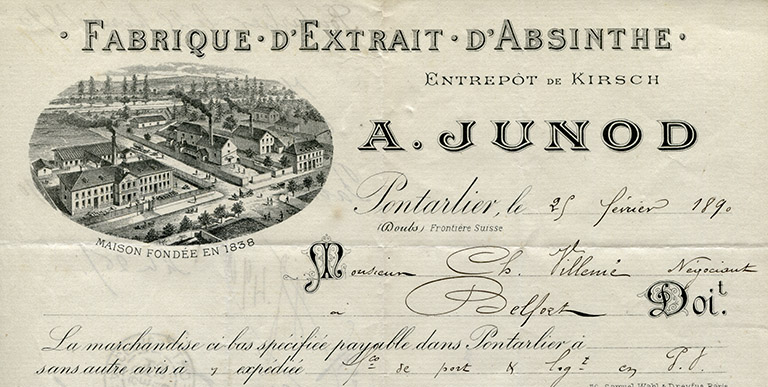 · FABRIQUE · D'EXTRAIT · D'ABSINTHE ·
ENTREPÔT DE KIRSCH
A. JUNOD
MAISON FONDÉE EN 1838
Pontarlier, le 25 février 1890
(Doubs) Frontière Suisse
Monsieur Ch. Villemé Négociant
à Belfort Doit.
La marchandise ci-bas spécifiée payable dans Pontarlier à
sans autre avis à expédiée fco de port & en
Samuel Wahl & Dreyfus Paris